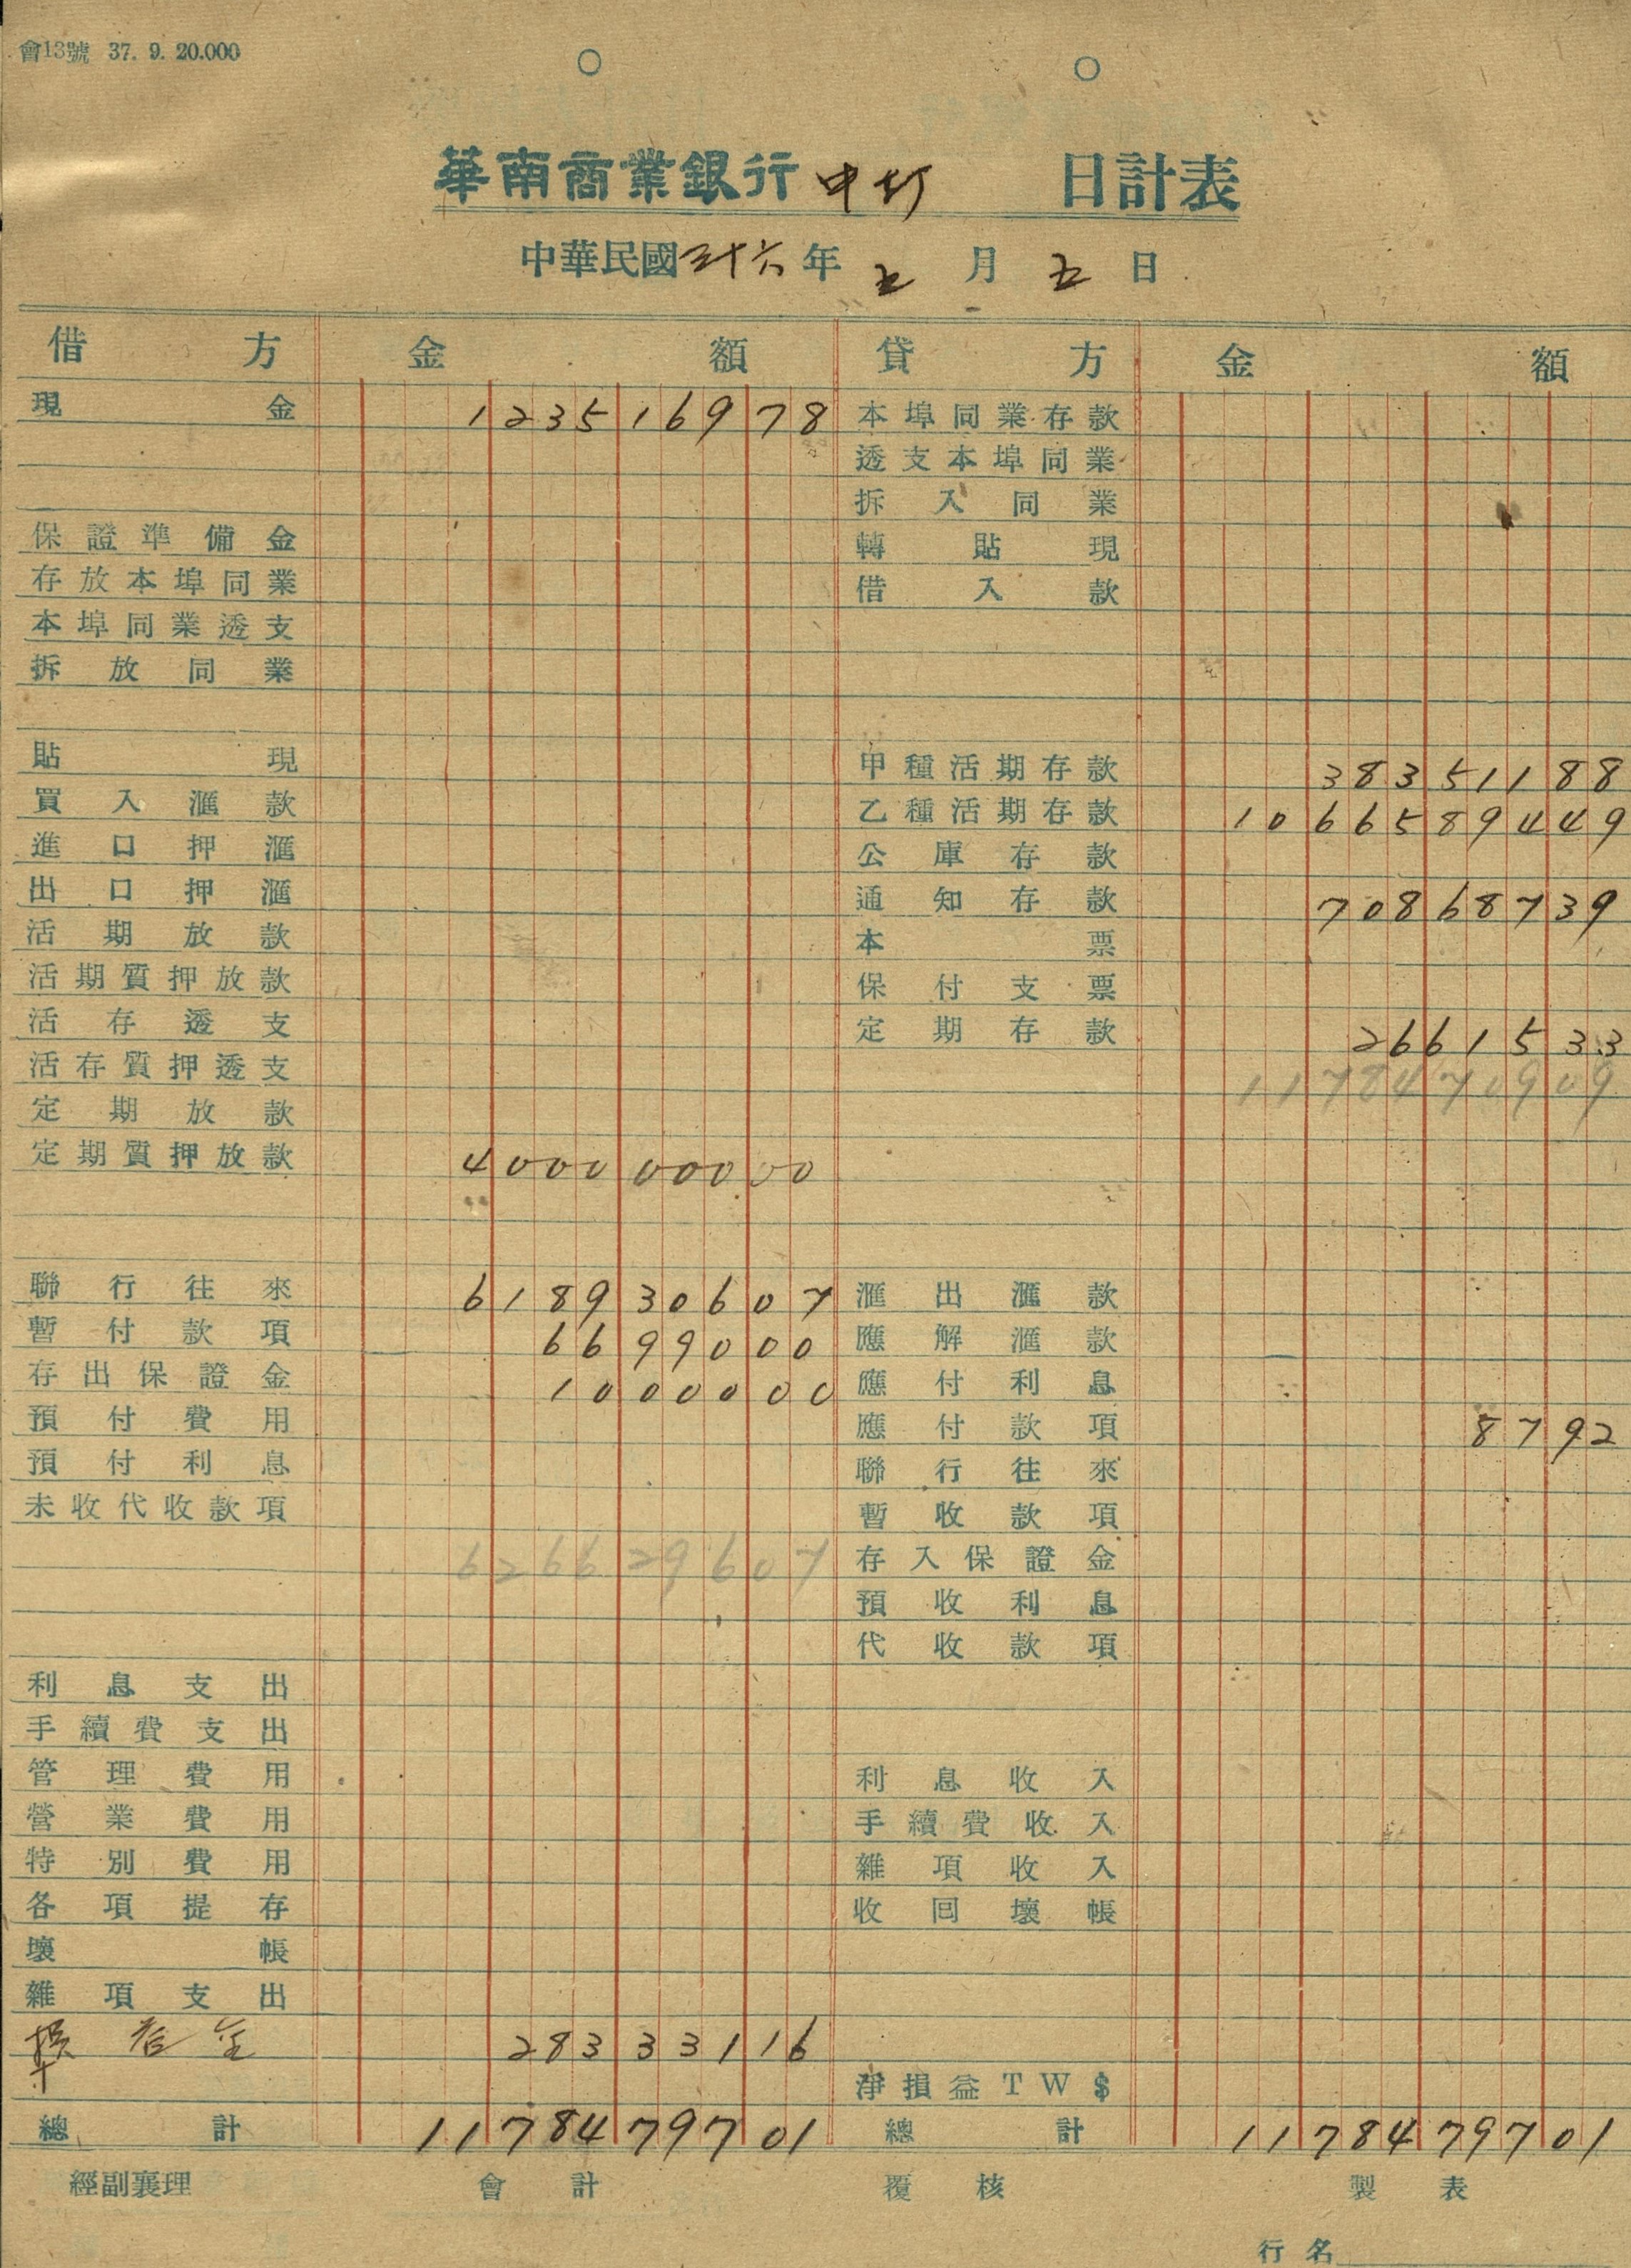 會13號 37. 9. 20.000
華南商業銀行 日計表
中華民國三十六年 五 月 五 日
借方 金額 貸方 金額
現金 123516978 本埠同業存款
透支本埠同業
拆入同業
保證準備金 轉貼現
存放本埠同業 借入款
本埠同業透支
拆放同業
貼現 甲種活期存款 38351188
買入滙款 乙種活期存款 1066589449
進口押滙 公庫存款
出口押滙 通知存款 70868739
活期放款 本票
活期質押放款 保付支票
活存透支 定期存款 2661533
活存質押透支 1178470909
定期放款
定期質押放款 4000000000
聯行往來 618930607 滙出滙款
暫付款項 6699000 應解滙款
存出保證金 1000000 應付利息
預付費用 應付款項 8792
預付利息 聯行往來
未收代收款項 暫收款項
626629607 存入保證金
預收利息
代收款項
利息支出
手續費支出
管理費用 利息收入
營業費用 手續費收入
特別費用 雜項收入
各項提存 收回壞帳
壞帳
雜項支出
28333116
淨損益TW$
總計 1178479701 總計 1178479701
經副襄理 會計 覆核 製表
行名